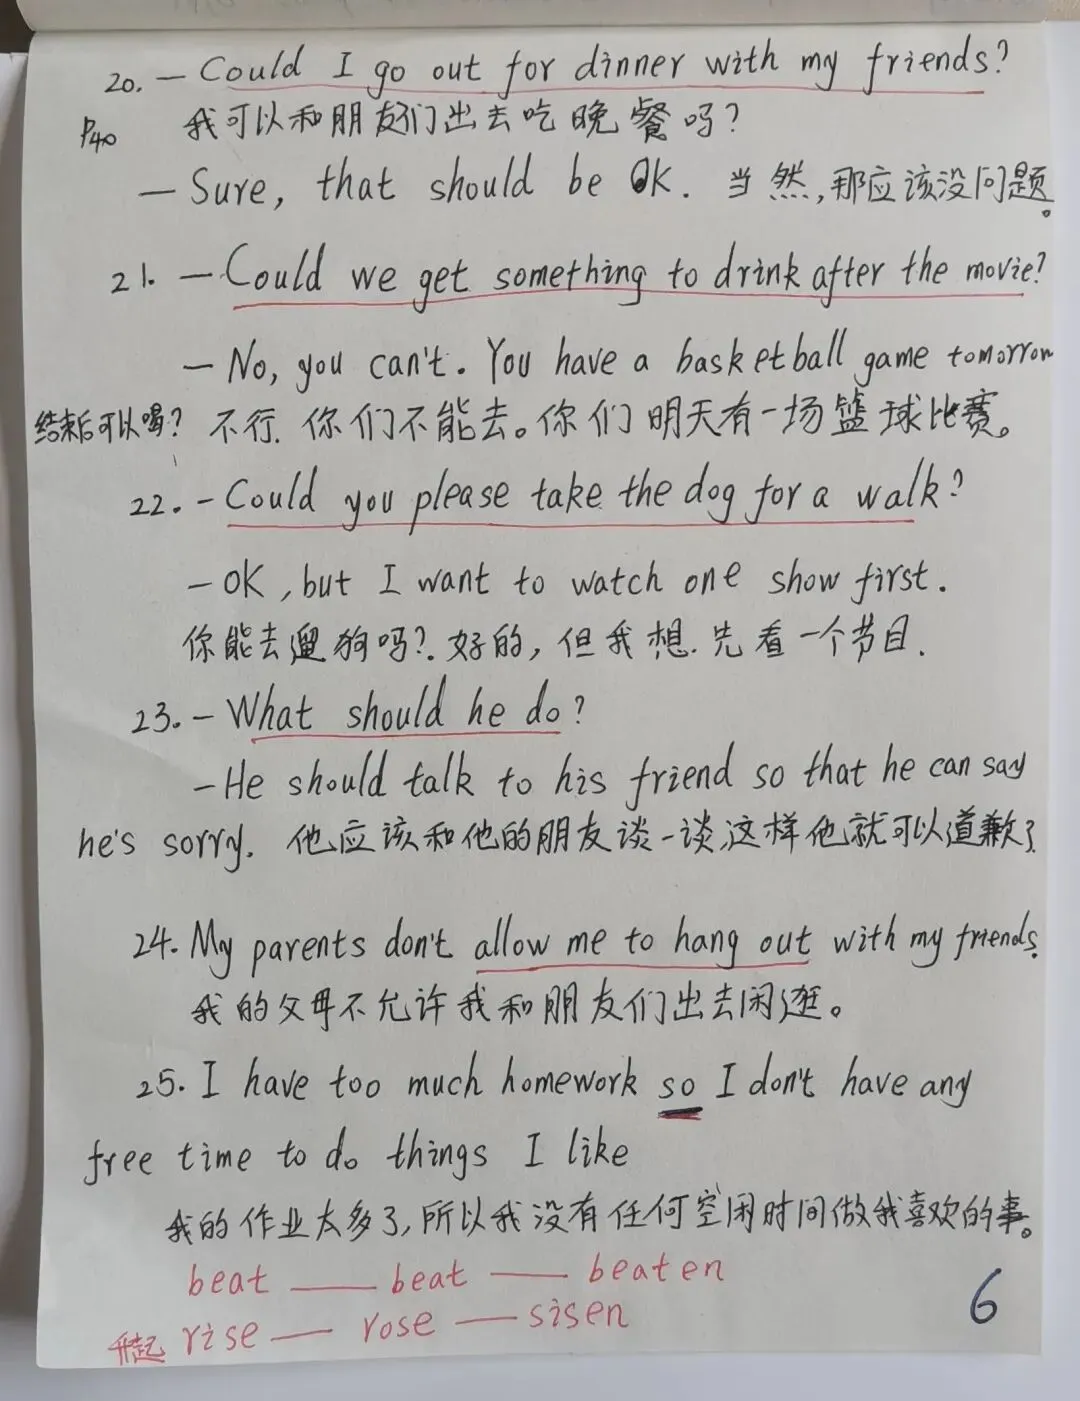 20. — Could I go out for dinner with my friends?
P40 我可以和朋友们出去吃晚餐吗?
— Sure, that should be OK. 当然,那应该没问题。
21. — Could we get something to drink after the movie?
— No, you can't. You have a basketball game tomorrow
结束后可以喝? 不行. 你们不能去。你们明天有一场篮球比赛。
22. - Could you please take the dog for a walk?
- OK, but I want to watch one show first.
你能去遛狗吗?. 好的, 但我想. 先看一个节目.
23. - What should he do?
- He should talk to his friend so that he can say
he's sorry. 他应该和他的朋友谈一谈,这样他就可以道歉了
24. My parents don't allow me to hang out with my friends.
我的父母不允许我和朋友们出去闲逛。
25. I have too much homework so I don't have any
free time to do things I like
我的作业太多了,所以我没有任何空闲时间做我喜欢的事。
beat —— beat —— beaten
升起 rise — rose — sisen
6